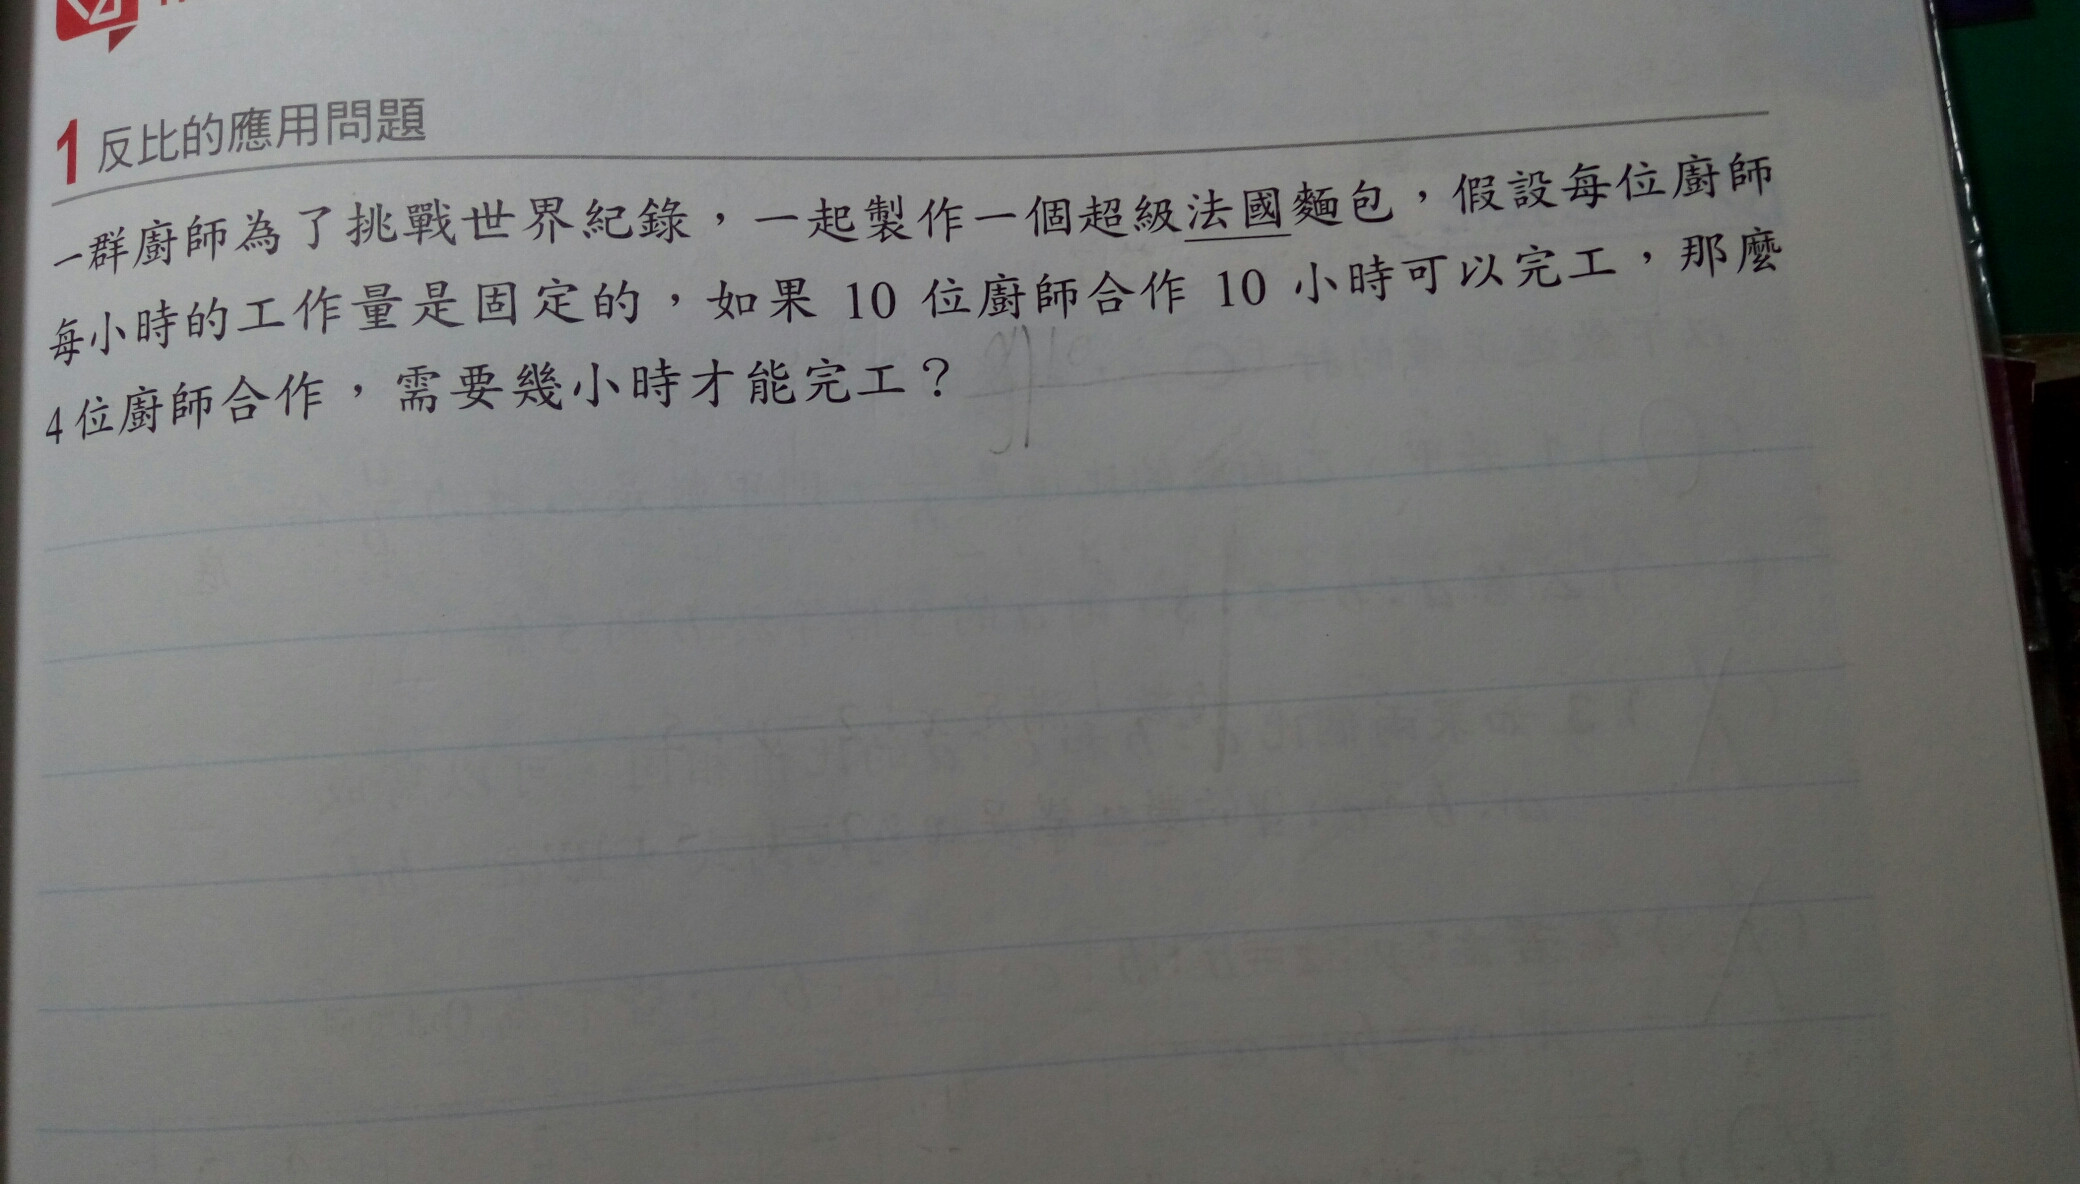 1 反比的應用問題
一群廚師為了挑戰世界紀錄，一起製作一個超級法國麵包，假設每位廚師
每小時的工作量是固定的，如果 10 位廚師合作 10 小時可以完工，那麼
4 位廚師合作，需要幾小時才能完工？